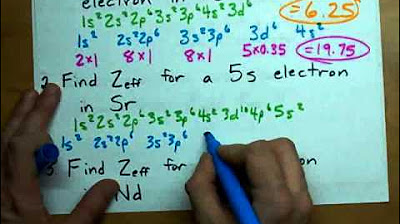 electron in
= 6.25
1s² 2s² 2p⁶ 3s² 3p⁶ 4s² 3d⁶
1s² 2s² 2p⁶ 3s² 3p⁶ 3d⁶ 4s²
2×1 8×1 8×1 5×0.35 = 19.75
2. Find Zeff for a 5s electron
in Sr
1s² 2s² 2p⁶ 3s² 3p⁶ 4s² 3d¹⁰ 4p⁶ 5s²
1s² 2s² 2p⁶ 3s² 3p⁶
3 Find Zeff for
Nd